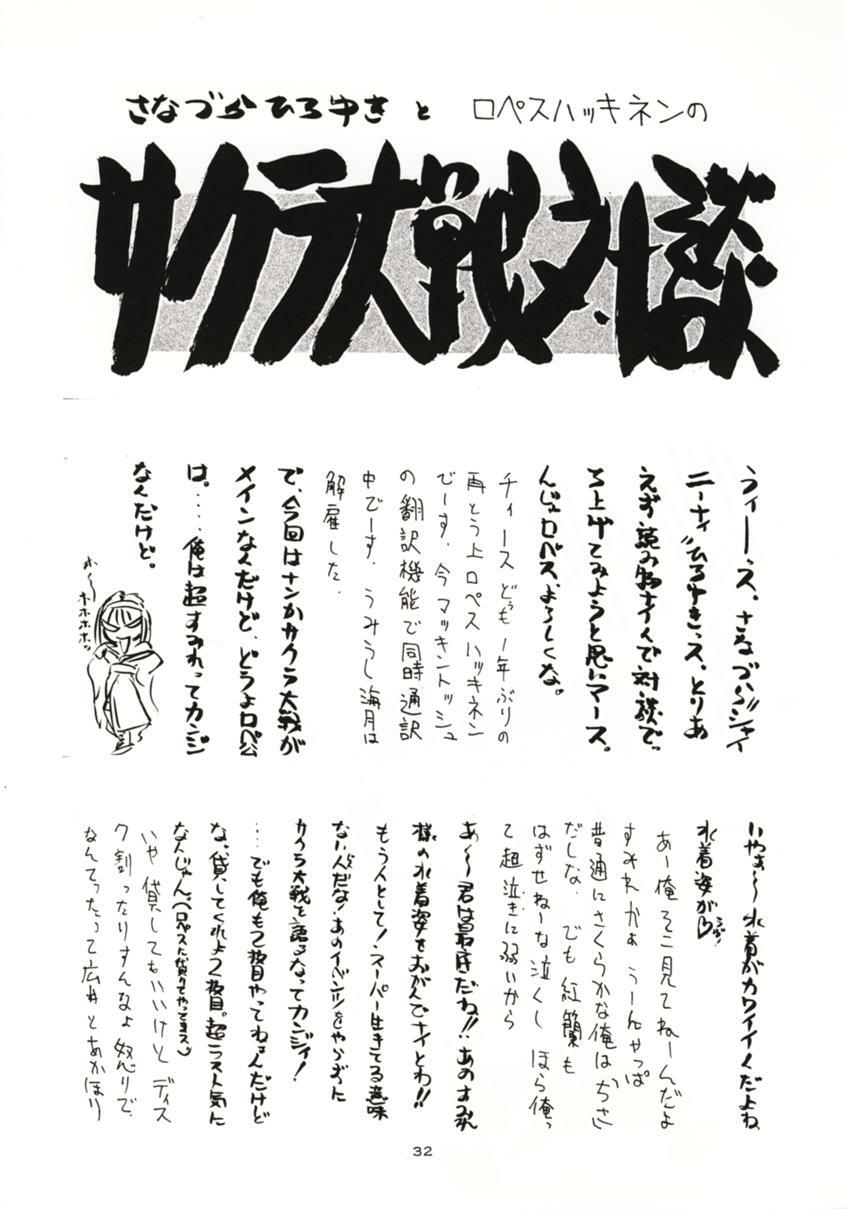 さなづらひろゆきと ロペスハッキネンの
サクラ大戦対談
うぃーっス。さなづら"ジャイ
ニーナィ"ひろゆきっス。とりあ
えず読み物ナイんで対談でっ
ち上げてみようと思いマース。
んじゃロペス、よろしくな。
チィース どぅも1年ぶりの
再とう上ロペスハッキネン
でーす。今マッキントッシュ
の翻訳機能で同時通訳
中でーす。うみうし海月は
解雇した。
で、今回はナンかサクラ大戦が
メインなんだけど、どうよロペ公
は。…俺は超すみれってカンジ
なんだけど。
ホ〜ホホホホッ
いやぁ〜水着がカワイイんだよね、
水着姿が♡
あー俺そこ見てねーんだよ
すみれかぁ うーんやっぱ
普通にさくらかな俺は。ちさ
だしな。でも紅蘭も
はずせねーな泣くし ほら俺っ
て超泣きに弱いから
あ〜〜君は最低だね!!あのすみれ
様の水着姿をおがんでナイとわ!!
もう人として!スーパー生きてる意味
ないんだな!あのイベンツをやらずに
サクラ大戦を語るなってカンジィ!
…でも俺も2枚目やってねぇんだけど
な。貸してくれよ2枚目。超ラスト気に
なんじゃん。
いや 貸してもいいけど ディス
ク割ったりすんなよ 怒りで。
なんてったって広井とあかほり
32